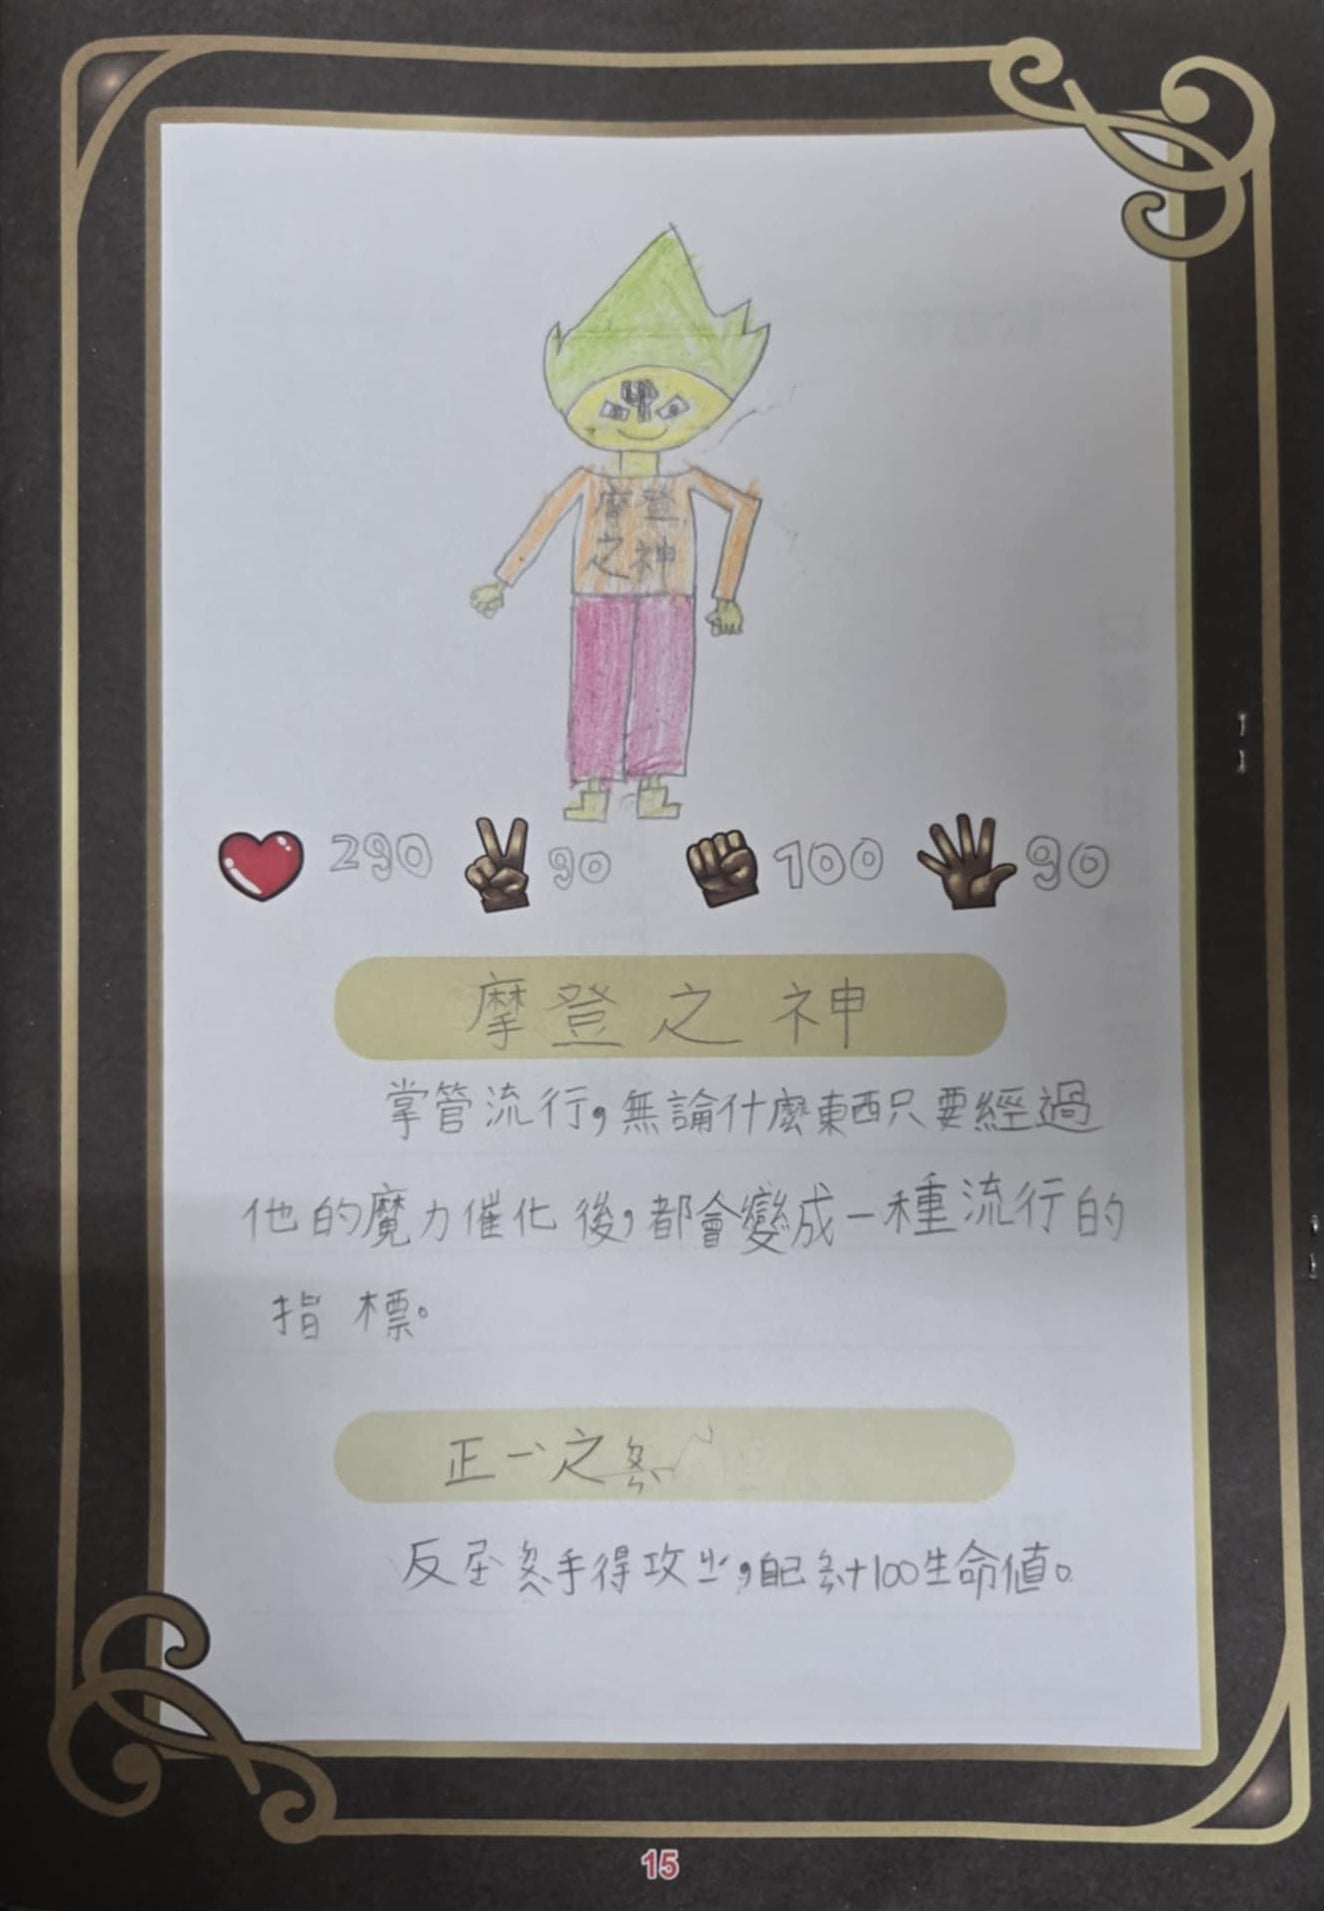 摩登
之神
290 90 100 90
摩登之神
掌管流行,無論什麼東西只要經過
他的魔力催化後,都會變成一種流行的
指標。
正一之
反 手得攻 ,自己 +100生命值。
15